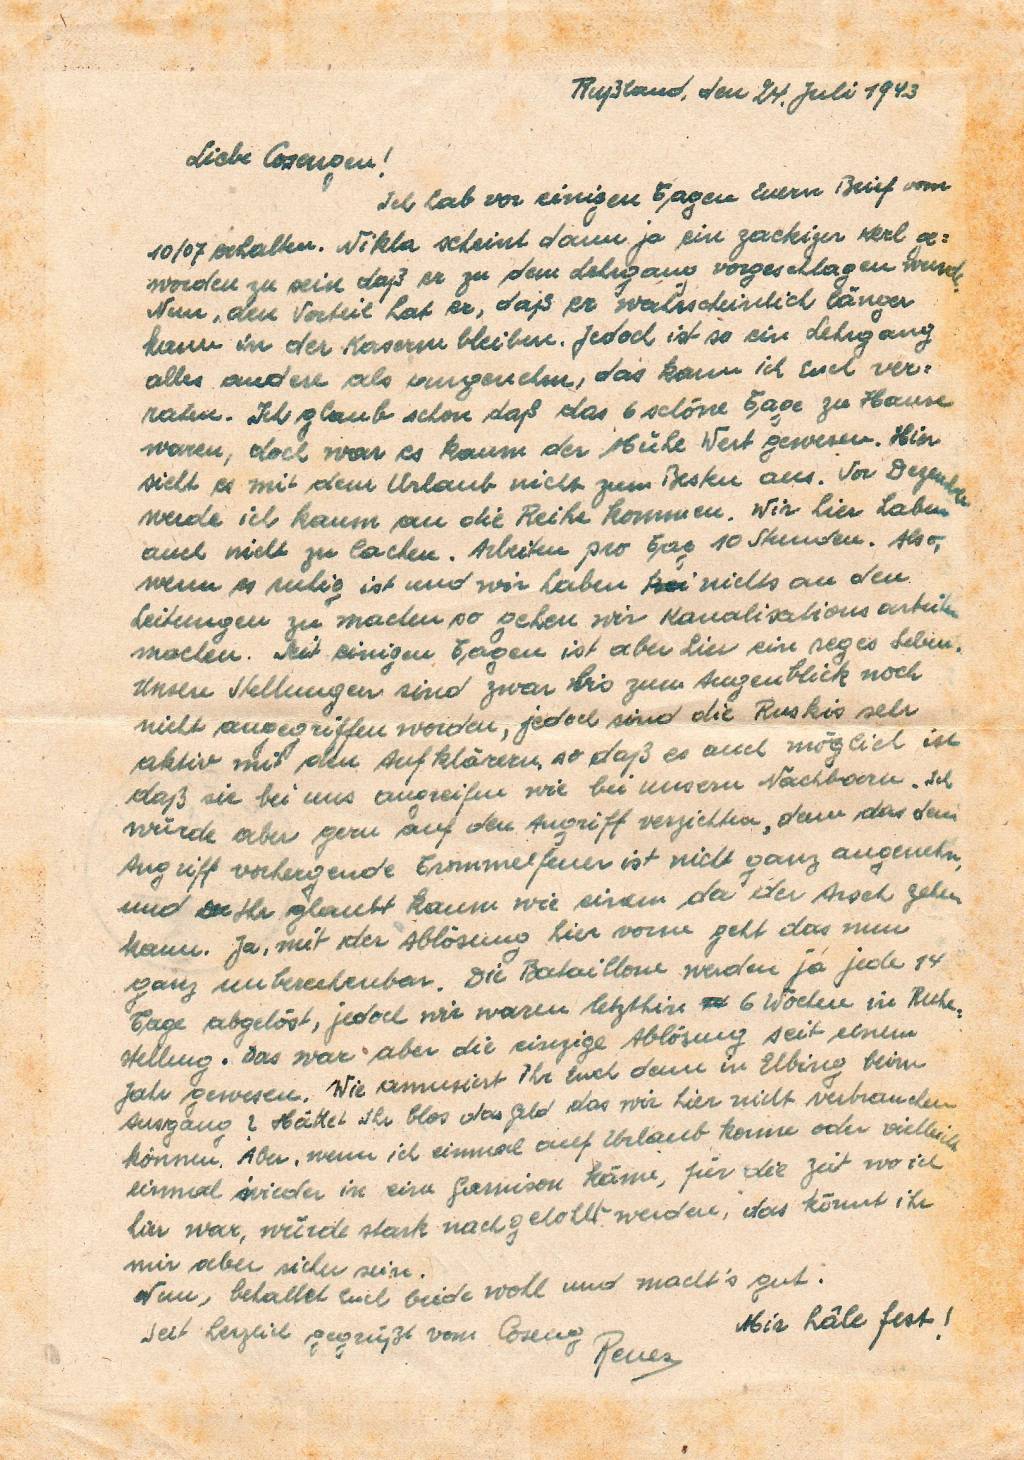 Rußland, den 24. Juli 1943
Liebe Cosengen!
Ich hab vor einigen Tagen Euern Brief vom
10/07 erhalten. Nikla scheint dann ja ein zackiger Kerl ge=
worden zu sein daß er zu dem Lehrgang vorgeschlagen wurd.
Nun, den Vorteil hat er, daß er wahrscheinlich länger
kann in der Kaserne bleiben. Jedoch ist so ein Lehrgang
alles andere als angenehm, das kann ich Euch ver=
raten. Ich glaub schon daß das 6 schöne Tage zu Hause
waren, doch war es kaum der Mühe Wert gewesen. Hier
sieht es mit dem Urlaub nicht zum Besten aus. Vor Dezember
werde ich kaum an die Reihe kommen. Wir hier haben
auch nicht zu lachen. Arbeiten pro Tag 10 Stunden. Also,
wenn es ruhig ist und wir haben nichts an den
Leitungen zu machen so gehen wir Kanalisationsarbeiten
machen. Seit einigen Tagen ist aber hier ein reges Leben.
Unsere Stellungen sind zwar bis zum Augenblick noch
nicht angegriffen worden, jedoch sind die Ruskis sehr
aktiv mit den Aufklärern, so daß es auch möglich ist
daß sie bei uns angreifen wie bei unsern Nachbaarn. Ich
würde aber gern auf den Angriff verzichten, denn das dem
Angriff vorhergende Trommelfeuer ist nicht ganz angenehm,
und Ihr glaubt kaum wie einem da der Arsch gehen
kann. Ja, mit der Ablösung hier vorne geht das nun
ganz unberechenbar. Die Bataillone werden ja jede 14
Tage abgelöst, jedoch wir waren letzthin 6 Wochen in Ruhe=
stellung. Das war aber die einzige Ablösung seit einem
Jahr gewesen. Wie amusiert Ihr Euch denn in Elbing beim
Ausgang? Hättet Ihr blos das Geld das wir hier nicht verbrauchen
können. Aber, wenn ich einmal auf Urlaub komme oder vielleicht
einmal wieder in eine Garnison käme, für die Zeit wo ich
hier war, würde stark nachgeholt werden, das könnt ihr
mir aber sicher sein.
Nun, behaltet Euch beide wohl und macht's gut.
Seit herzlich gegrüßt vom Coseng
Mir häle fest!